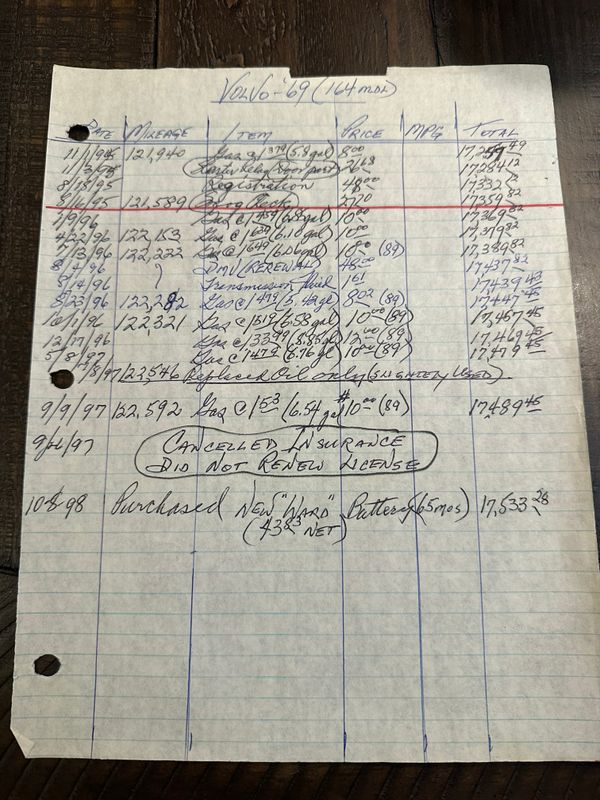 VOLVO-'69 (164 MDL)
DATE MILEAGE ITEM PRICE MPG TOTAL
121,940 Gas @ 1379 (5.8 gal) 8 00
(Door post) 17,284 12
8/18/95 Registration 48 00 17332 12
8/16/95 121,589 Smog Check 27 70 17359 82
1/9/96 10 00 17,369 82
4/22/96 122,153 Gas @ 10 00 17,379 82
7/13/96 122,222 Gas @ 1649 (6.06 gal) 10 00 (89) 17,389 82
8/14/96 ? DMV (RENEWAL) 48 00 17,437 82
8/14/96 ? Transmission fluid 1 61 17439 43
8/23/96 Gas @ 1479 (5.42 gl) 8 02 (89) 17447 45
10/1/96 122,321 Gas @ 1519 (6.58 gal) 10 00 (89) 17,457 45
12/17/96 Gas @ (8.85 gl) 12 00 (89) 17,469 45
5/8/97 Gas @ 1479 (6.76 gl) 10 00 (89) 17,479 45
/8/97 122,546 Replaced Oil only (SLIGHTLY USED).
9/9/97 122,592 Gas @ 1 53 (6.54 gal) #10 00 (89) 17489 45
CANCELLED INSURANCE
DID NOT RENEW LICENSE
10-8-98 Purchased NEW "WARD" Battery (65 mos) 17,533 28
(43 83 NET)